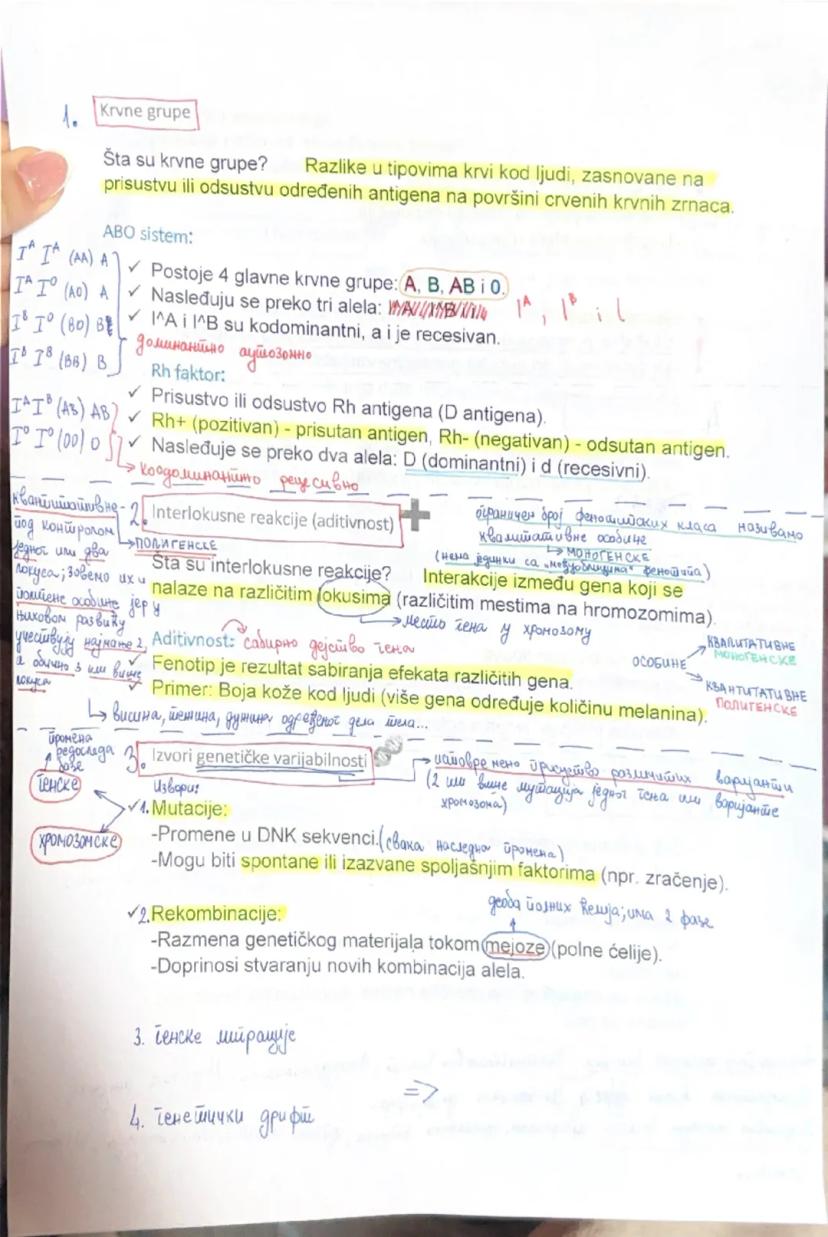 1. Krvne grupe
Šta su krvne grupe? Razlike u tipovima krvi kod ljudi, zasnovane na
prisustvu ili odsustvu određenih antigena na površini crvenih krvnih zrnaca.
ABO sistem:
I^A I^A (AA) A
I^A I^O (AO) A
I^B I^O (BO) B
I^B I^B (BB) B
доминантно аутозомно
✓ Postoje 4 glavne krvne grupe: A, B, AB i 0.
✓ Nasleđuju se preko tri alela: I^A, I^B i i
✓ I^A i I^B su kodominantni, a i je recesivan.
Rh faktor:
I^A I^B (AB) AB
I^O I^O (OO) O
Коодоминантно рецесивно
✓ Prisustvo ili odsustvo Rh antigena (D antigena).
✓ Rh+ (pozitivan) - prisutan antigen, Rh- (negativan) - odsutan antigen.
✓ Nasleđuje se preko dva alela: D (dominantni) i d (recesivni).
2. Interlokusne reakcije (aditivnost)
ограничен број фенотипских класа називамо
квалитативне особине
→ МОНОГЕНСКЕ
(нема јединки са „међуобличјима" фенотипа)
квантитативне-
→ПОЛИГЕНСКЕ
под контролом
једног или два
локуса; зовемо их и
полигене особине јер у
њиховом развићу
учествују најмање 2,
а обично 3 или више
локуса
Šta su interlokusne reakcije? Interakcije između gena koji se
nalaze na različitim lokusima (različitim mestima na hromozomima).
→место гена у хромозому
Aditivnost: →сабирно дејство гена
✓ Fenotip je rezultat sabiranja efekata različitih gena.
✓ Primer: Boja kože kod ljudi (više gena određuje količinu melanina).
→ висина, тежина, дужина одређеног дела тела...
ОСОБИНЕ
КВАЛИТАТИВНЕ
МОНОГЕНСКЕ
КВАНТИТАТИВНЕ
ПОЛИГЕНСКЕ
3. Izvori genetičke varijabilnosti
→ истовремено присуство различитих варијанти
(2 или више мутација једног гена или варијанте
хромозома)
Извори:
промена
редоследа
базе
генске
хромозомске
✓1. Mutacije:
-Promene u DNK sekvenci. (свака наследна промена)
-Mogu biti spontane ili izazvane spoljašnjim faktorima (npr. zračenje).
деоба полних ћелија; има 2 фазе
✓2. Rekombinacije:
-Razmena genetičkog materijala tokom mejoze (polne ćelije).
-Doprinosi stvaranju novih kombinacija alela.
3. генске миграције
=>
4. генетички дрифт